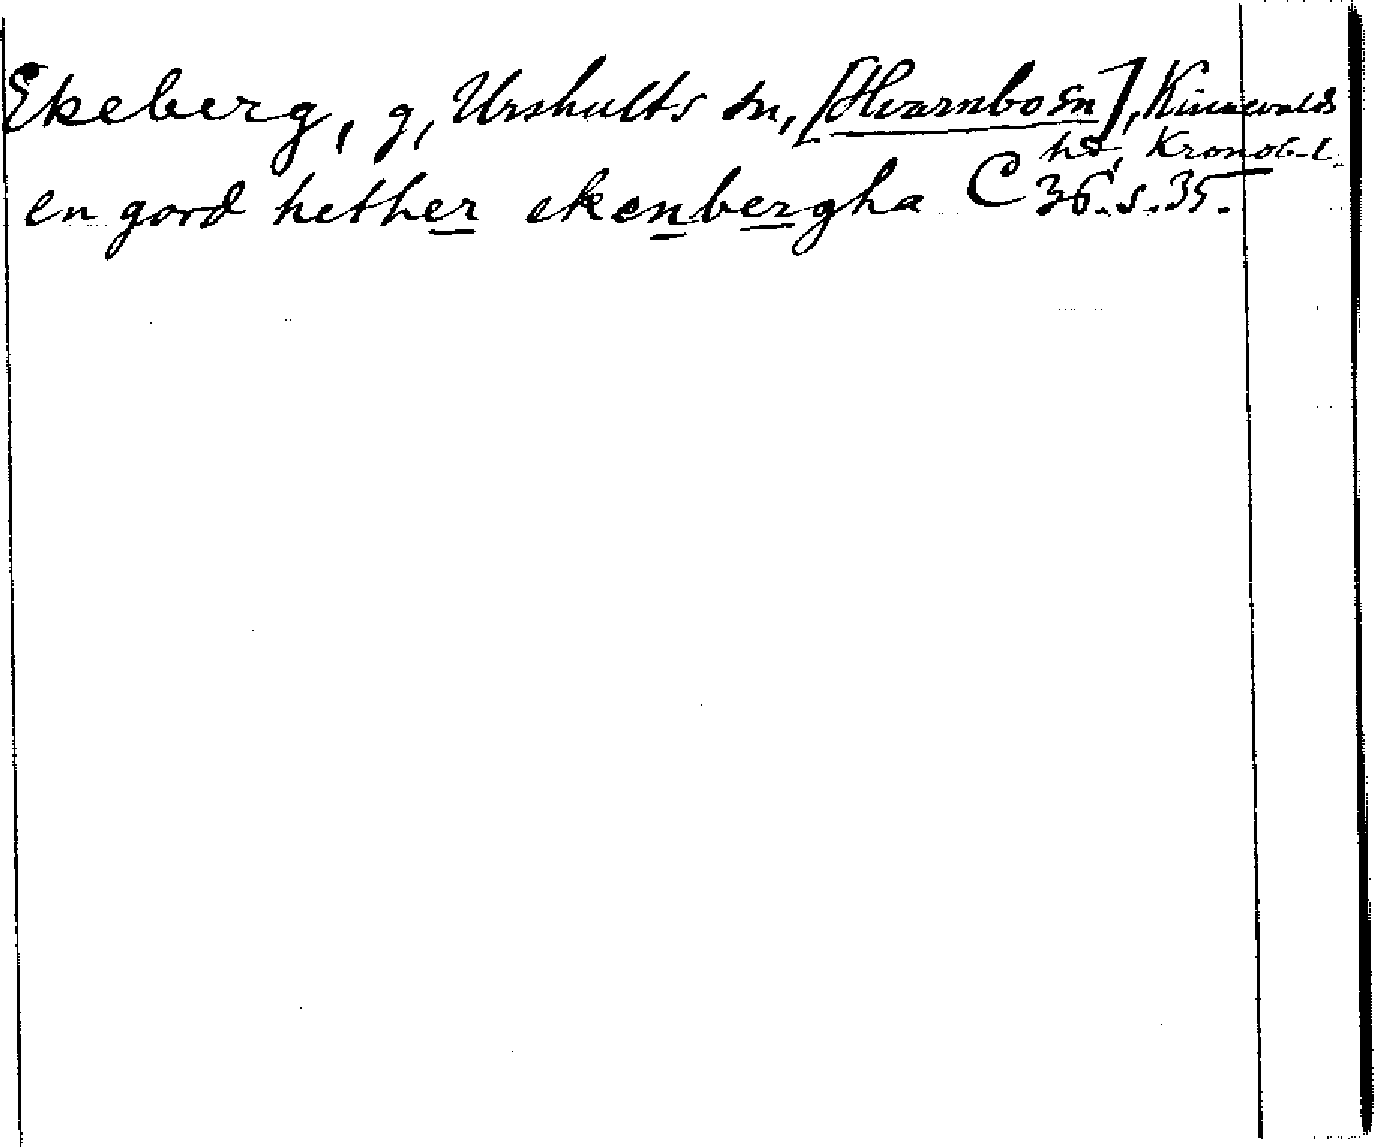 Ekeberg, g, Urshults sn, [Hvarnbo sn], Kinnevalds
hd, Kronob.l.
en gord hether ekenbergha C 36. s. 35.